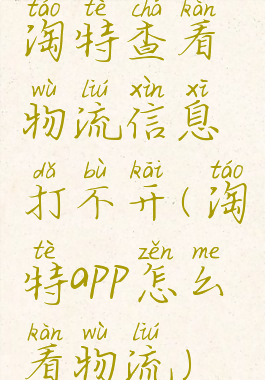 táo tè chá kàn
淘特查看
wù liú xìn xī
物流信息
dǎ bù kāi táo
打不开(淘
tè zěn me
特app怎么
kàn wù liú
看物流)